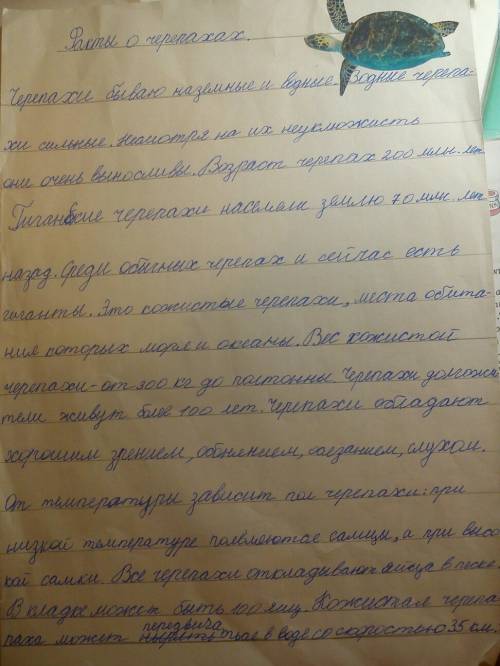 Факты о черепахах.
Черепахи бываю наземные и водные. Водные черепа-
хи сильные. Несмотря на их неуклюжисть
они очень выносливы. Возраст черепах 200 млн. лет
Гиганские черепахи населяли землю 70 млн. лет
назад. Среди обычных черепах и сейчас есть
гиганты. Это кожистые черепахи, места обита-
ния которых моря и океаны. Вес кожистой
черепахи - от 300 кг до полтонны. Черепахи долгожи
тели живут более 100 лет. Черепахи обладают
хорошим зрением, обонянием, осезанием, слухом.
От температуры зависит пол черепахи: при
низкой температуре появляются самцы, а при высо
кой самки. Все черепахи откладывают яйца в песке.
В кладке может быть 100 яиц. Кожистая черепа
паха может передвигаться в воде со скоростью 35 см.